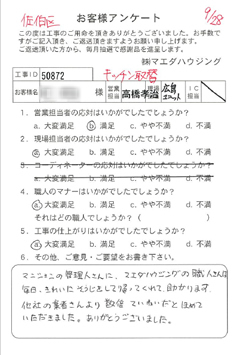 佐伯区
お客様アンケート
9/28
この度は工事のご用命を頂きありがとうございました。お手数
ですがご記入頂き、ご返送頂きますようお願い申し上げます。
ご返送頂いた方から、毎月抽選で感謝品を進呈します。
㈱マエダハウジング
工事ID 50872 キッチン取替
お客様名 様 営業担当 高橋孝治 担当 広島 IC担当
1. 営業担当者の応対はいかがでしたでしょうか?
a. 大変満足 b. 満足 c. やや不満 d. 不満
2. 現場担当者の応対はいかがでしたでしょうか?
a. 大変満足 b. 満足 c. やや不満 d. 不満
3. コーディネーターの応対はいかがでしたでしょうか?
a. 大変満足 b. 満足 c. やや不満 d. 不満
4. 職人のマナーはいかがでしたでしょうか?
a. 大変満足 b. 満足 c. やや不満 d. 不満
それはどの職人でしょうか?( )
5. 工事の仕上がりはいかがでしたでしょうか?
a. 大変満足 b. 満足 c. やや不満 d. 不満
6. その他、ご意見・ご要望をお書き下さい。
マンションの管理人さんに、マエダハウジングの職人さんは
毎日、きれいにそうじをして帰ってくれて、助かります。
他社の業者さんより数倍ていねいだとほめて
いただきました。ありがとうございました。